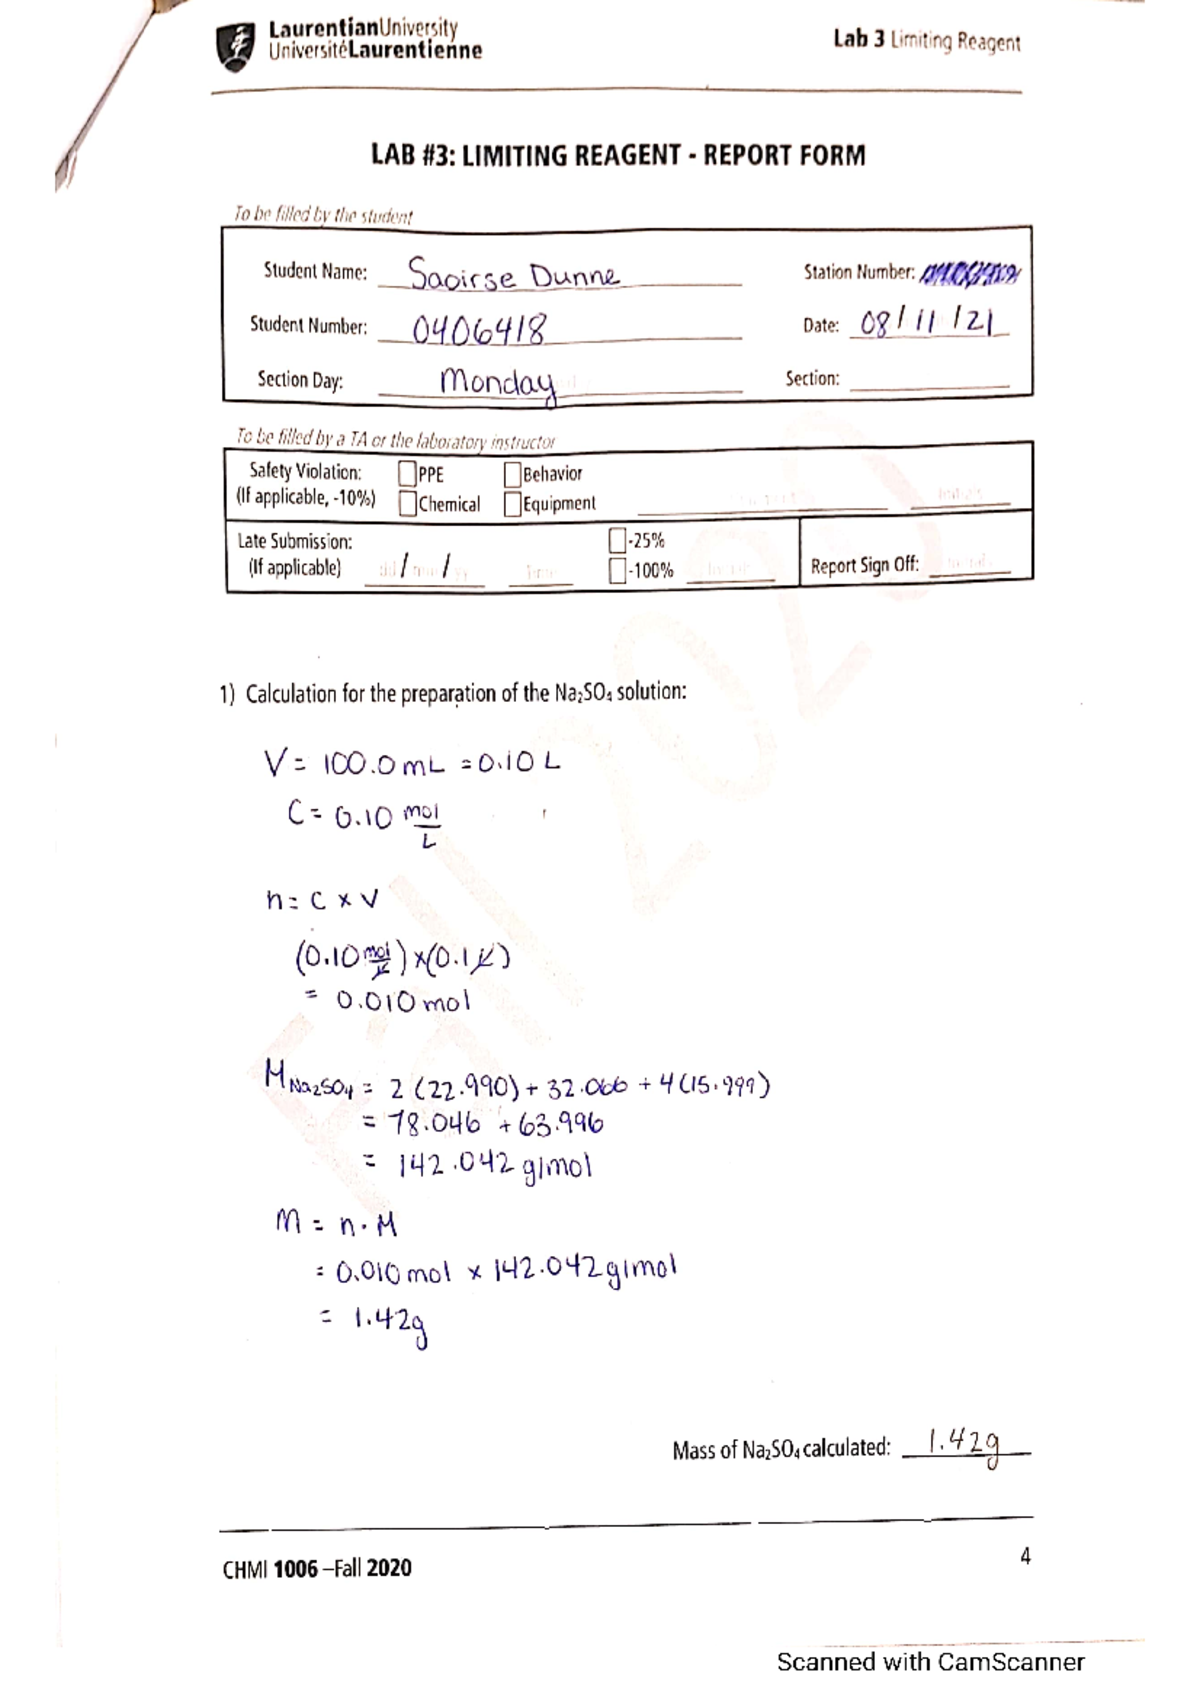 LaurentianUniversity
UniversitéLaurentienne
Lab 3 Limiting Reagent
LAB #3: LIMITING REAGENT - REPORT FORM
To be filled by the student
Student Name: Saoirse Dunne
Station Number:
Student Number: 0406418
Date: 08/11/21
Section Day: Monday
Section:
To be filled by a TA or the laboratory instructor
Safety Violation: PPE Behavior
(If applicable, -10%) Chemical Equipment
Late Submission: -25%
(If applicable) / / -100% Report Sign Off:
Fall 2020
1) Calculation for the preparation of the Na₂SO₄ solution:
V = 100.0 mL = 0.10 L
C = 0.10 mol/L
n = C × V
(0.10 mol/L) × (0.1 L)
= 0.010 mol
M Na₂SO₄ = 2 (22.990) + 32.066 + 4(15.999)
= 78.046 + 63.996
= 142.042 g/mol
m = n · M
= 0.010 mol × 142.042 g/mol
= 1.42g
Mass of Na₂SO₄ calculated: 1.42g
CHMI 1006 –Fall 2020
4
Scanned with CamScanner